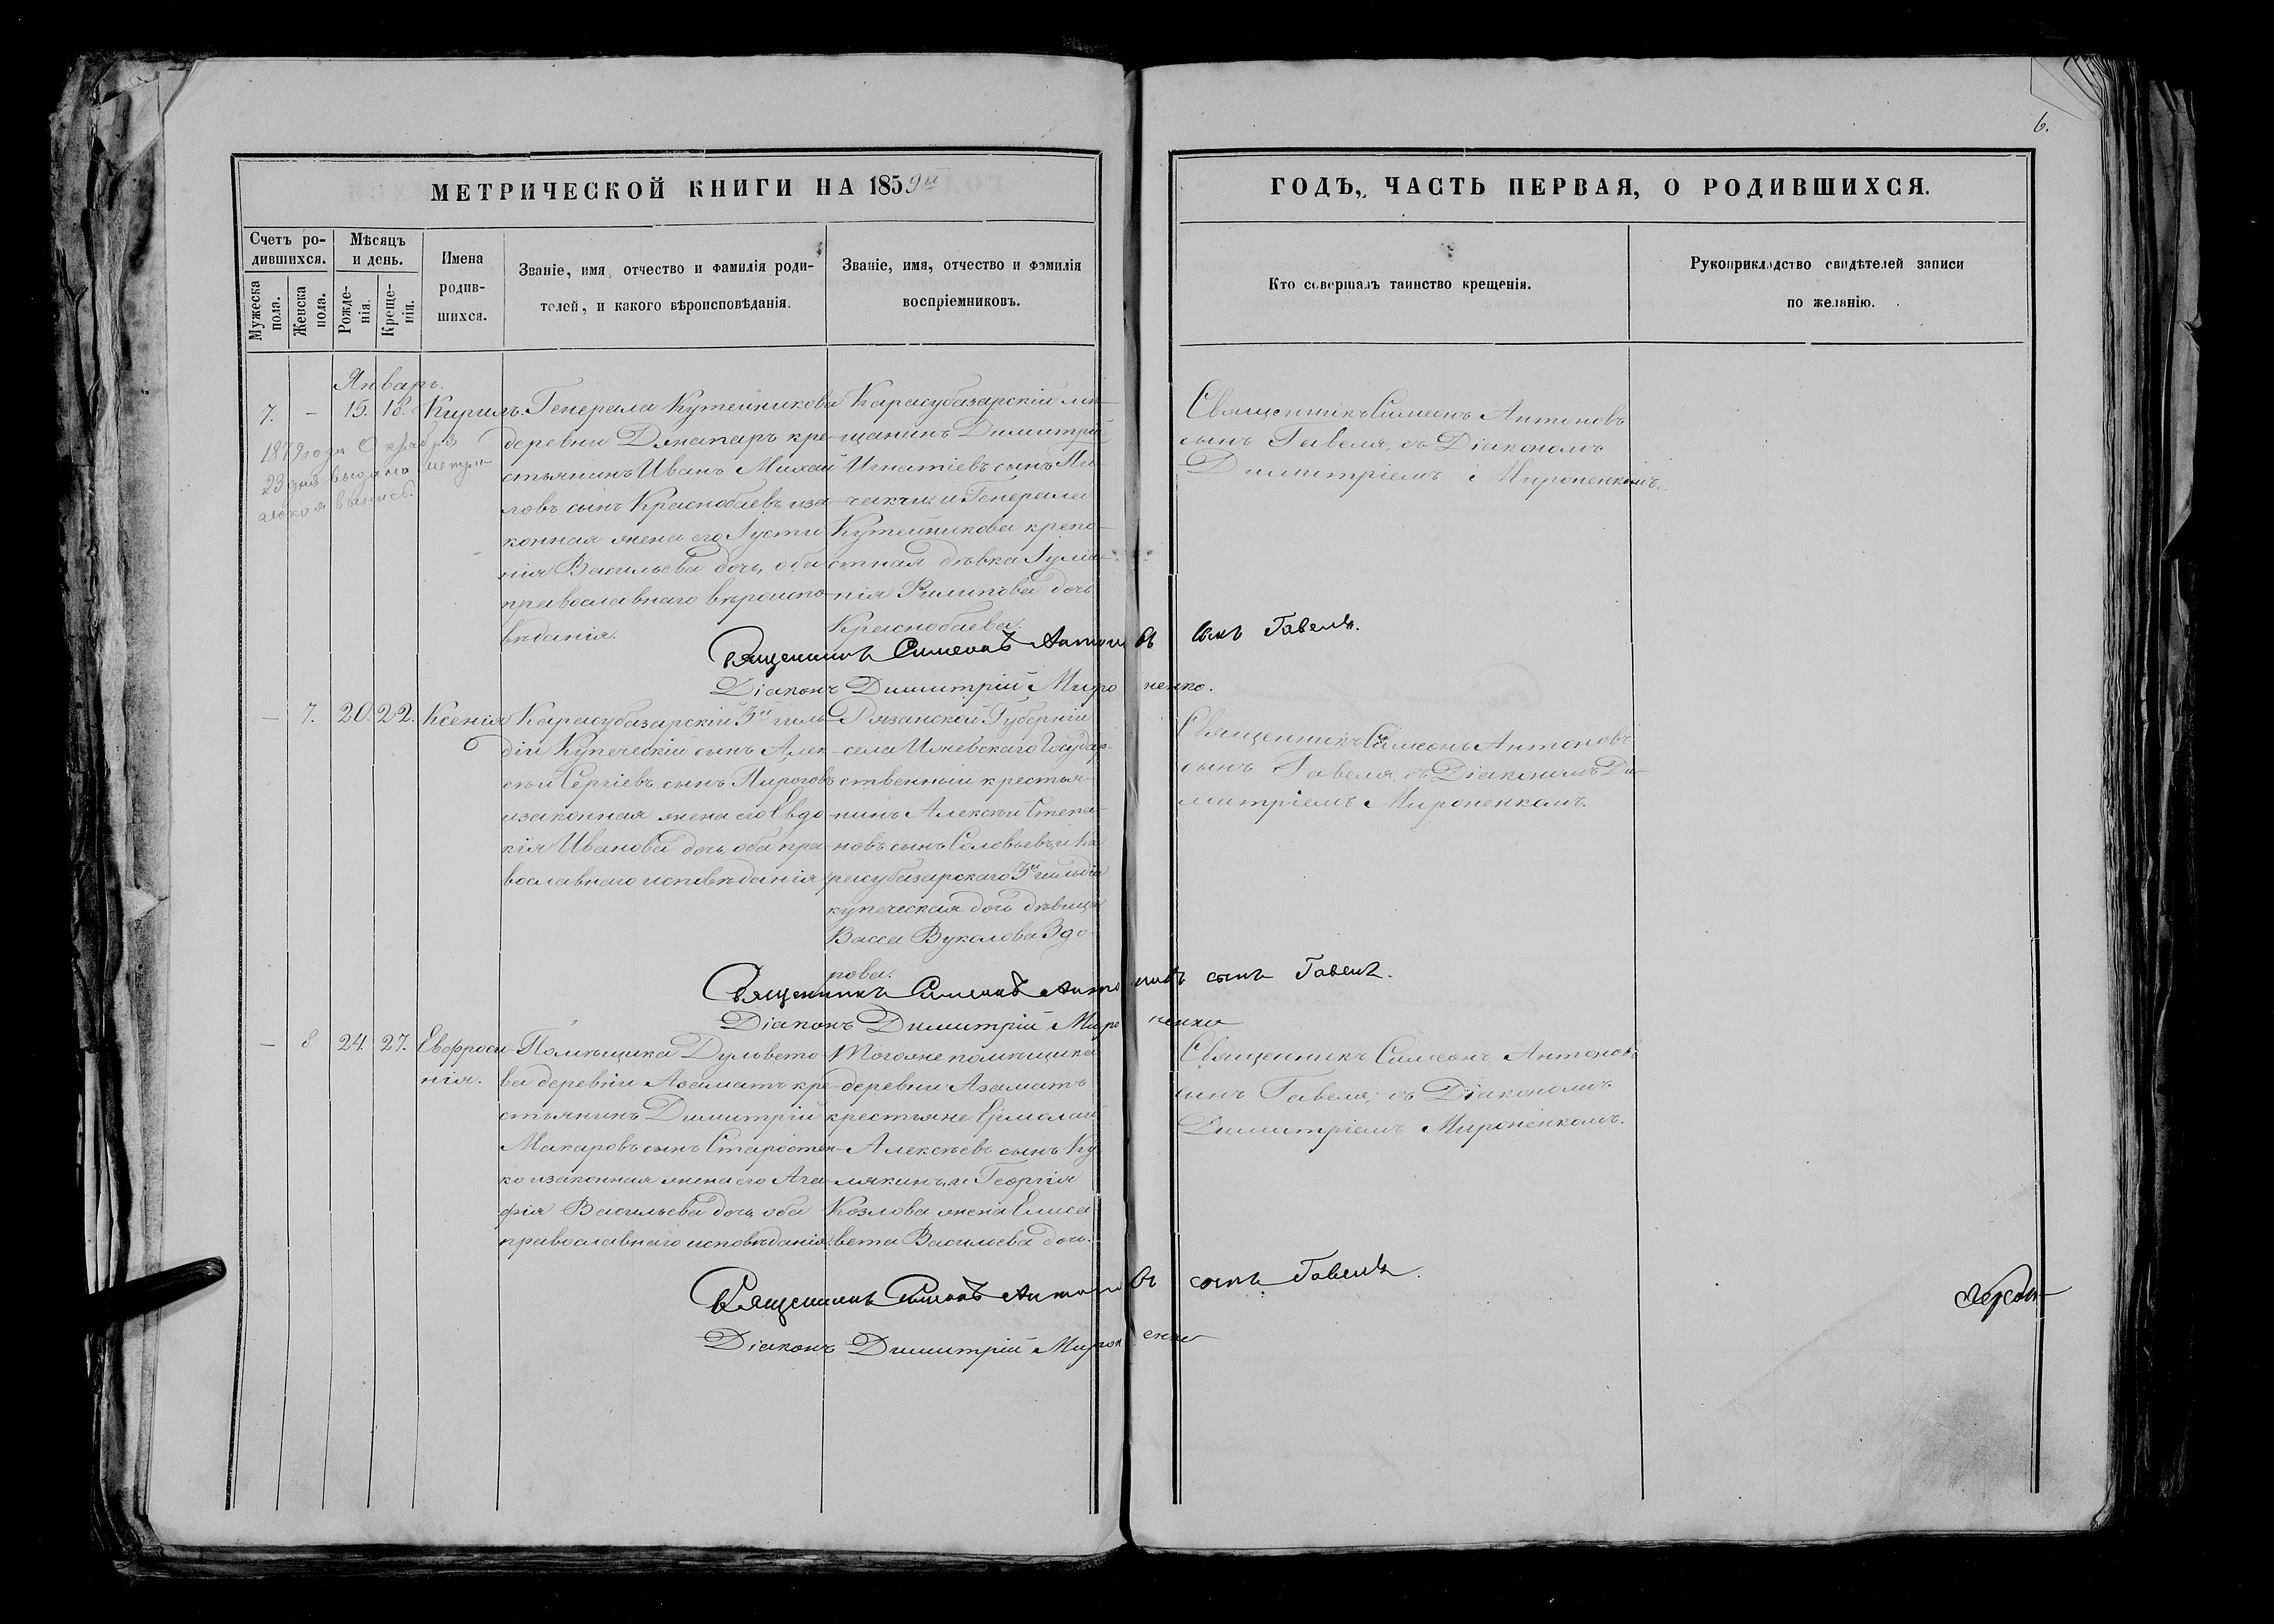 6.
МЕТРИЧЕСКОЙ КНИГИ НА 1859й
ГОДЪ, ЧАСТЬ ПЕРВАЯ, О РОДИВШИХСЯ.
Счетъ ро-
дившихся.
Мужеска
пола.
Женска
пола.
Мѣсяцъ
и день.
Рожде-
нія.
Креще-
нія.
Имена
родив-
шихся.
Званіе, имя, отчество и фамилія роди-
телей, и какого вѣроисповѣданія.
Званіе, имя, отчество и фамилія
воспріемниковъ.
Кто совершалъ таинство крещенія.
Рукоприкладство свидѣтелей записи
по желанію.
Январь.
7. - 15. 18. Кирилъ.
1879 года Октября
23 дня выдана метри
ческая выпись.
Генерала Кутейникова
деревни Джапаръ кре-
стьянинъ Иванъ Михай
ловъ сынъ Краснобаевъ иза-
конная жена его Іусти
нія Васильева дочь, оба
православнаго вѣроиспо-
вѣданія.
Карасубазарскій мѣ-
щанинъ Димитрій
Игнатіевъ сынъ
и Генерала
Кутейникова крепо-
стная дѣвка Іулiа-
нія Филипова дочь
Краснобаева.
Священникъ Симеонъ Антоновъ
сынъ Гавеля, съ Діакономъ
Димитріемъ Мироненкомъ.
Священникъ Симеонъ Антоновъ сынъ Гавеля.
Діаконъ Димитрій Мироненко.
— 7. 20. 22. Ксенія
Карасубазарскій 3й гиль-
діи Купеческій сынъ Алек-
сѣй Сергіевъ сынъ Пироговъ
изаконная жена его Евдо-
кія Иванова дочь, оба пра-
вославнаго исповѣданія
Рязанской Губерніи
села Ижевскаго Государ-
ственный крестья-
нинъ Алексѣй Степа-
новъ сынъ Соловьевъ, и Ка
расубазарскаго 3й гильдіи
купеческая дочь дѣвица
Васса Вукалова Здо-
рова.
Священникъ Симеонъ Антоновъ
сынъ Гавеля, съ Діакономъ Ди-
митріемъ Мироненкомъ.
Священникъ Симеонъ Антоновъ сынъ Гавеля.
Діаконъ Димитрій Мироненко
— 8 24. 27. Евфроси-
нія.
Помѣщика Дульвето-
ва деревни Азаматъ кре-
стьянинъ Димитрій
Макаровъ сынъ Старостен-
ко изаконная жена его Ага-
фія Васильева дочь, оба
православнаго исповѣданія.
Тогоже помѣщика
деревни Азаматъ
крестьяне Ермолай
Алексѣевъ сынъ Ку
лякинъ, и Георгія
Козлова жена Елиса
вета Васильева дочь.
Священникъ Симеонъ Антоновъ
сынъ Гавеля, съ Діакономъ
Димитріемъ Мироненкомъ.
Священникъ Симеонъ Антоновъ сынъ Гавеля.
Діаконъ Димитрій Мироненко